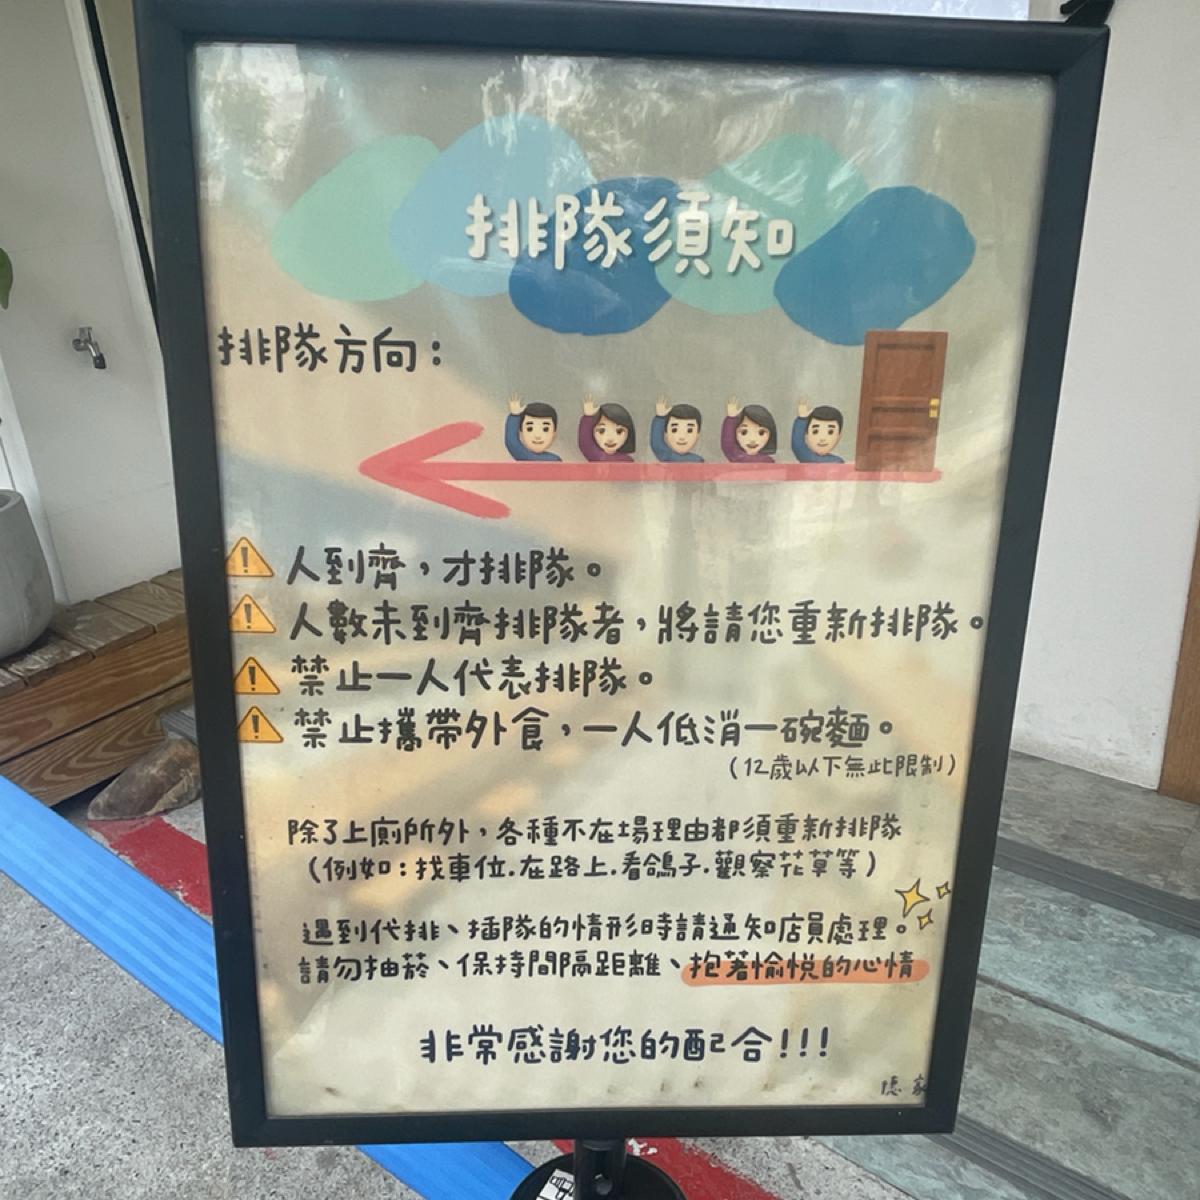 排隊須知
排隊方向：
人到齊，才排隊。
人數未到齊排隊者，將請您重新排隊。
禁止一人代表排隊。
禁止攜帶外食，一人低消一碗麵。
（12歲以下無此限制）
除了上廁所外，各種不在場理由都須重新排隊
（例如：找車位.在路上.看鴿子.觀察花草等）
遇到代排、插隊的情形時請通知店員處理。
請勿抽菸、保持間隔距離、抱著愉悅的心情
非常感謝您的配合!!!
隱家